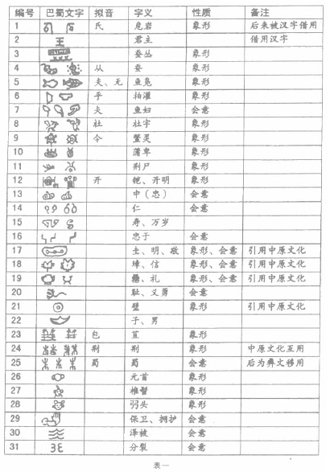 编号 巴蜀文字 拟音 字义 性质 备注
1 氏 危岩 象形 后来被汉字借用
2 君主 借用汉字
3 蚕丛 象形
4 从 蚕 象形
5 夫、无 鱼凫 象形
6 乎 柏灌 象形
7 夫 鱼妇 会意
8 杜 杜宇 象形
9 令 鳖灵 象形
10 蒲卑 象形
11 荆尸 象形
12 开 铠、开明 象形
13 中（忠） 会意
14 仁 会意
15 寿、万岁
16 忠于 会意
17 土、明、敬 象形、会意 引用中原文化
18 璋、信 象形、会意 引用中原文化
19 礼 象形、会意 引用中原文化
20 耻、义勇 会意
21 璧 象形 引用中原文化
22 子、男
23 包 苴 象形
24 荆 荆 象形 中原文化互用
25 蜀 蜀 会意 后为彝文移用
26 元首 象形
27 椎髻 象形
28 弱头 象形
29 保卫、拥护 会意
30 泽被 会意
31 分裂 会意
表一